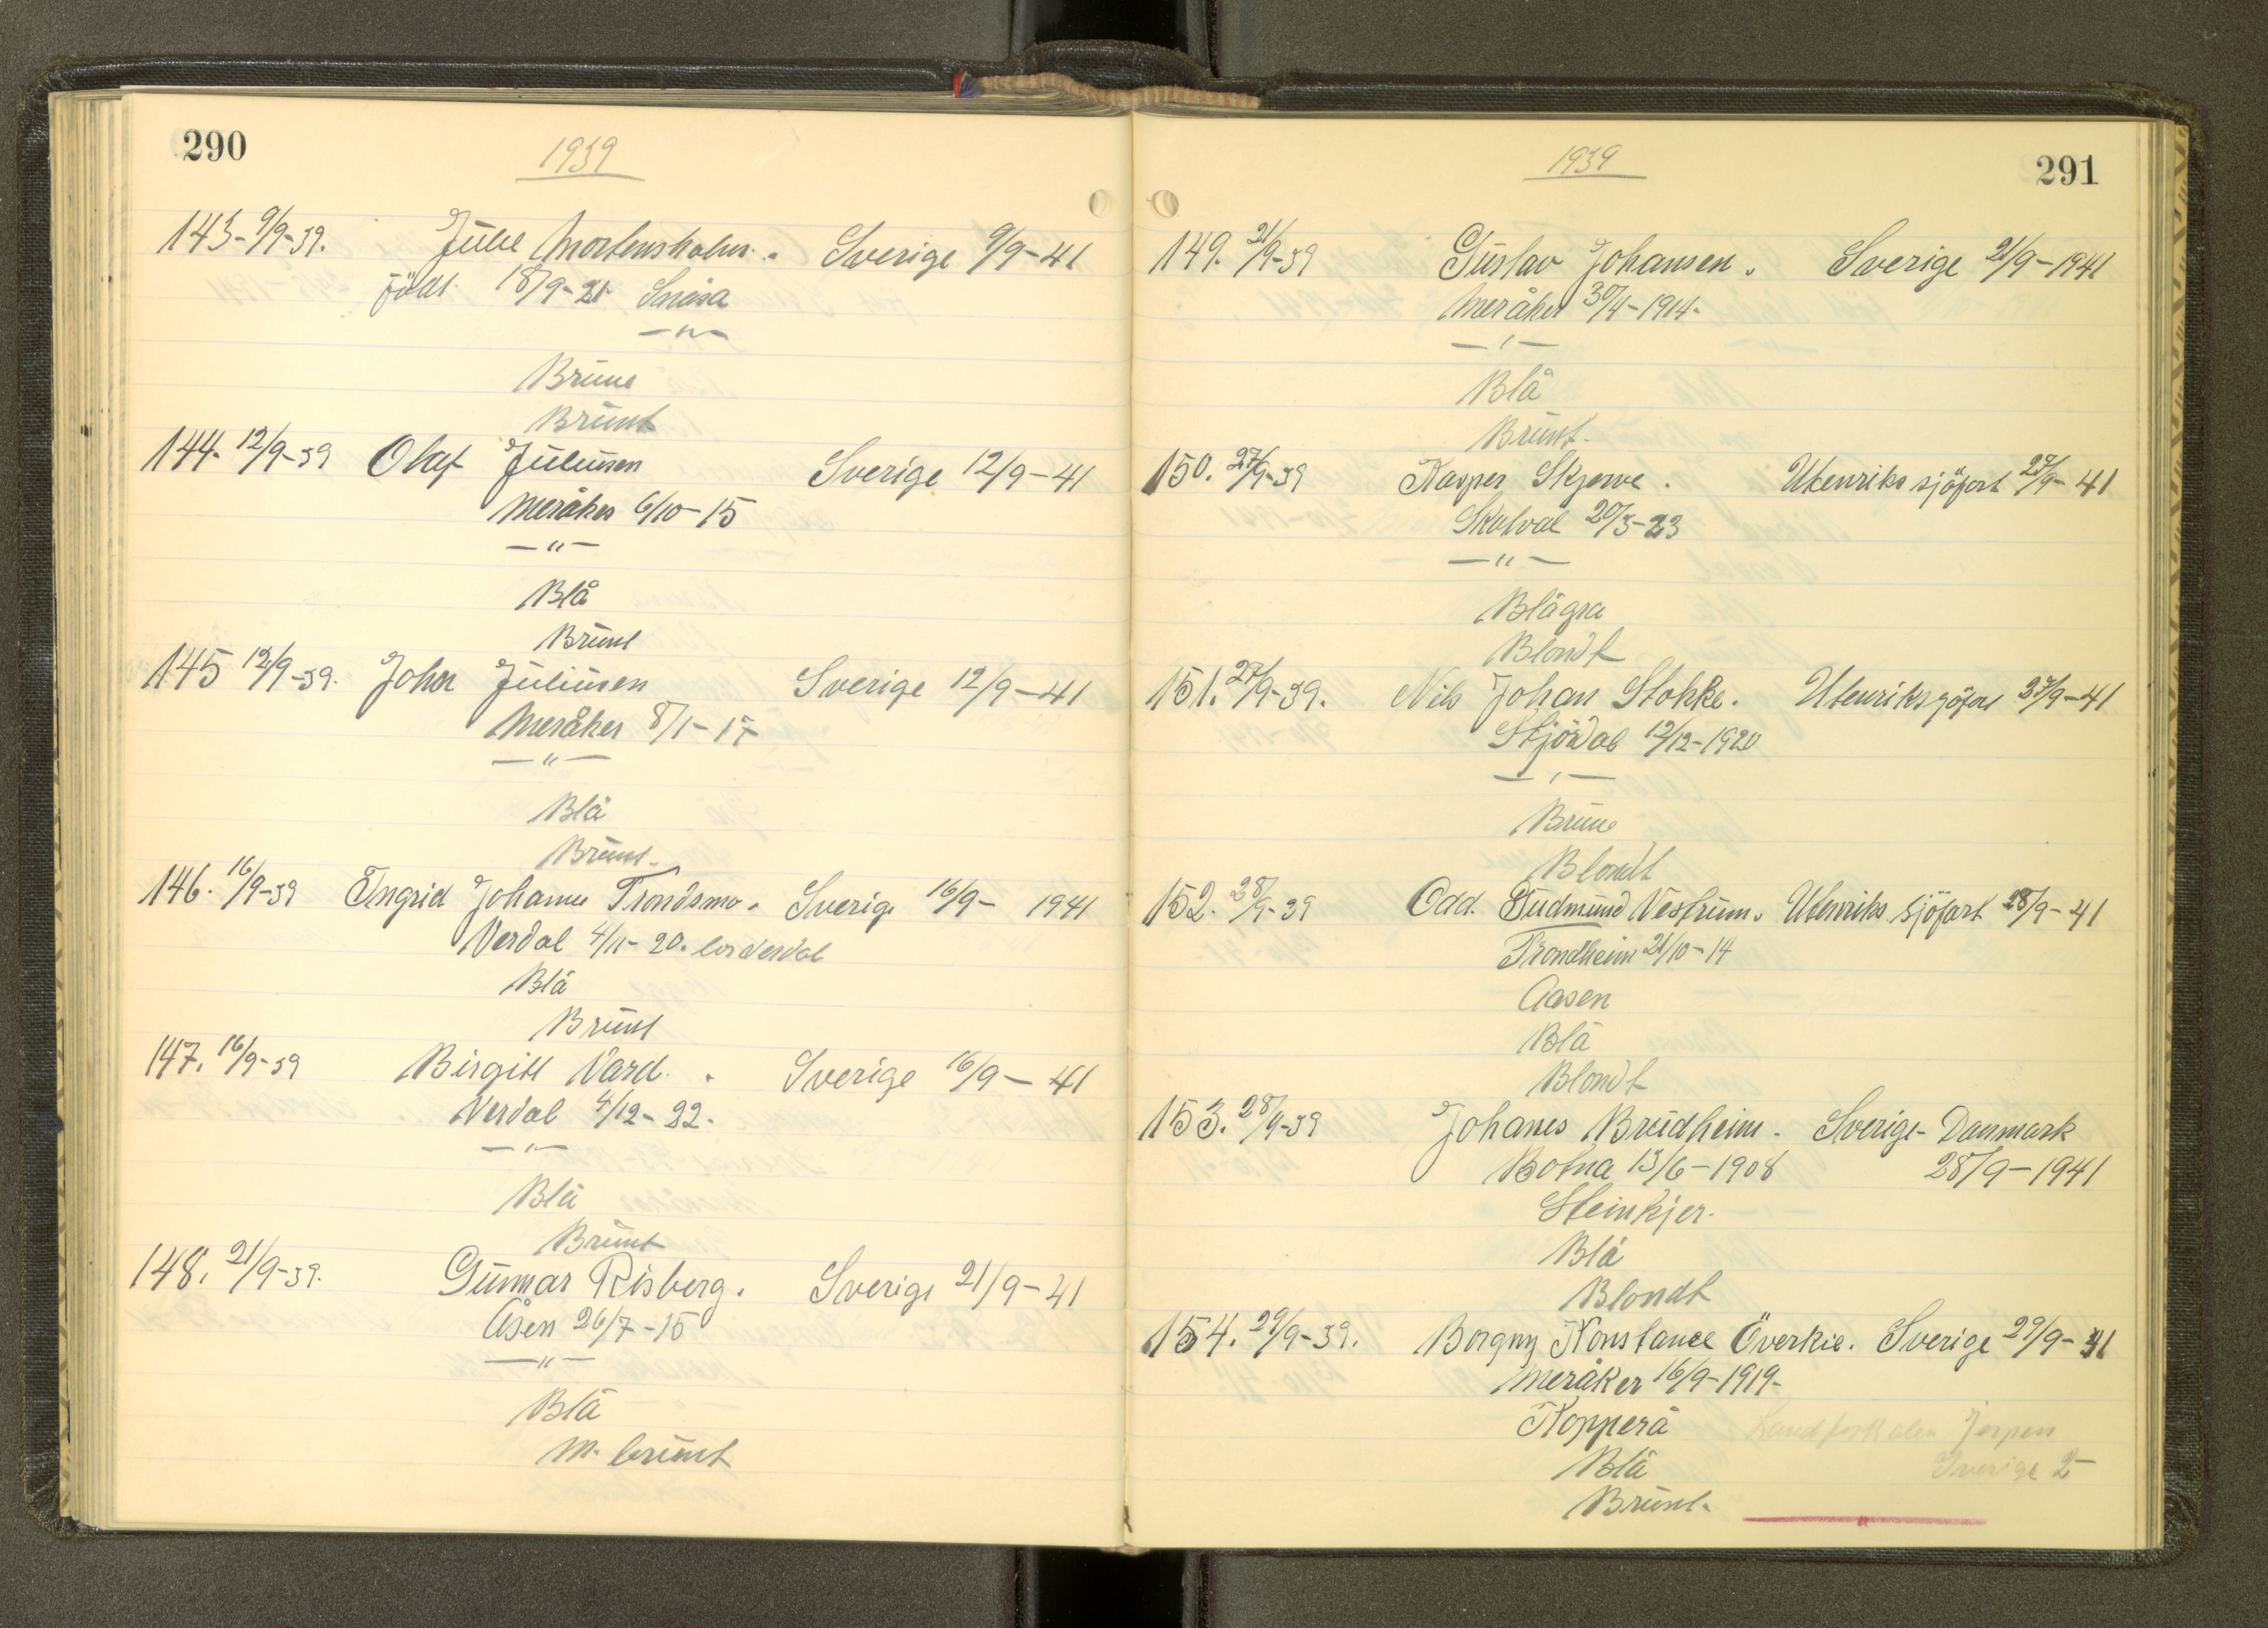 290
1939
143- 9/9-39. Julie Mortensholm. Sverige 9/9-41
född. 18/9-21 Snåsa
—"—
Brune
Brunt
144. 12/9-39 Olaf Juliusen Sverige 12/9-41
Meråker 6/10-15
—"—
Blå
Brunt
145 12/9-39. Johan Juliusen Sverige 12/9-41
Meråker 8/1-17
—"—
Blå
Brunt.
146. 16/9-39 Ingrid Johanne Trondsmo. Sverige 16/9- 1941
Verdal 4/11-20.
Blå
Brunt
147. 16/9-39 Birgitt Vard. Sverige 16/9-41
Verdal 4/12-22.
—"—
Blå
Brunt
148. 21/9-39. Gunnar Risberg. Sverige 21/9-41
Åsen 26/7-15
—"—
Blå
M. brunt
1939
291
149. 21/9-39 Gustav Johansen. Sverige 21/9-1941
Meråker 30/4-1914.
—"—
Blå
Brunt.
150. 27/9-39 Kasper Skjerve. Utenriks sjöfart 27/9-41
Skatval 20/3-23
—"—
Blågrå
Blondt
151. 27/9-39. Nils Johan Stokke. Utenriks sjöfart 27/9-41
Stjördal 12/12-1920
—"—
Brune
Blondt
152. 28/9-39 Odd. Gudmund Vestrum. Utenriks sjöfart 28/9-41
Trondheim 21/10-14
Aasen
Blå
Blondt
153. 28/9-39 Johanes Brudheim. Sverige-Danmark
Botna 13/6-1908 28/9-1941
Steinkjer.
Blå
Blondt
154. 29/9-39. Borgny Konstance Överkil. Sverige 29/9-41
Meråker 16/9-1919-
Kopperå Landfiskalen Jerpen
Blå Sverige 2-
Brunt.